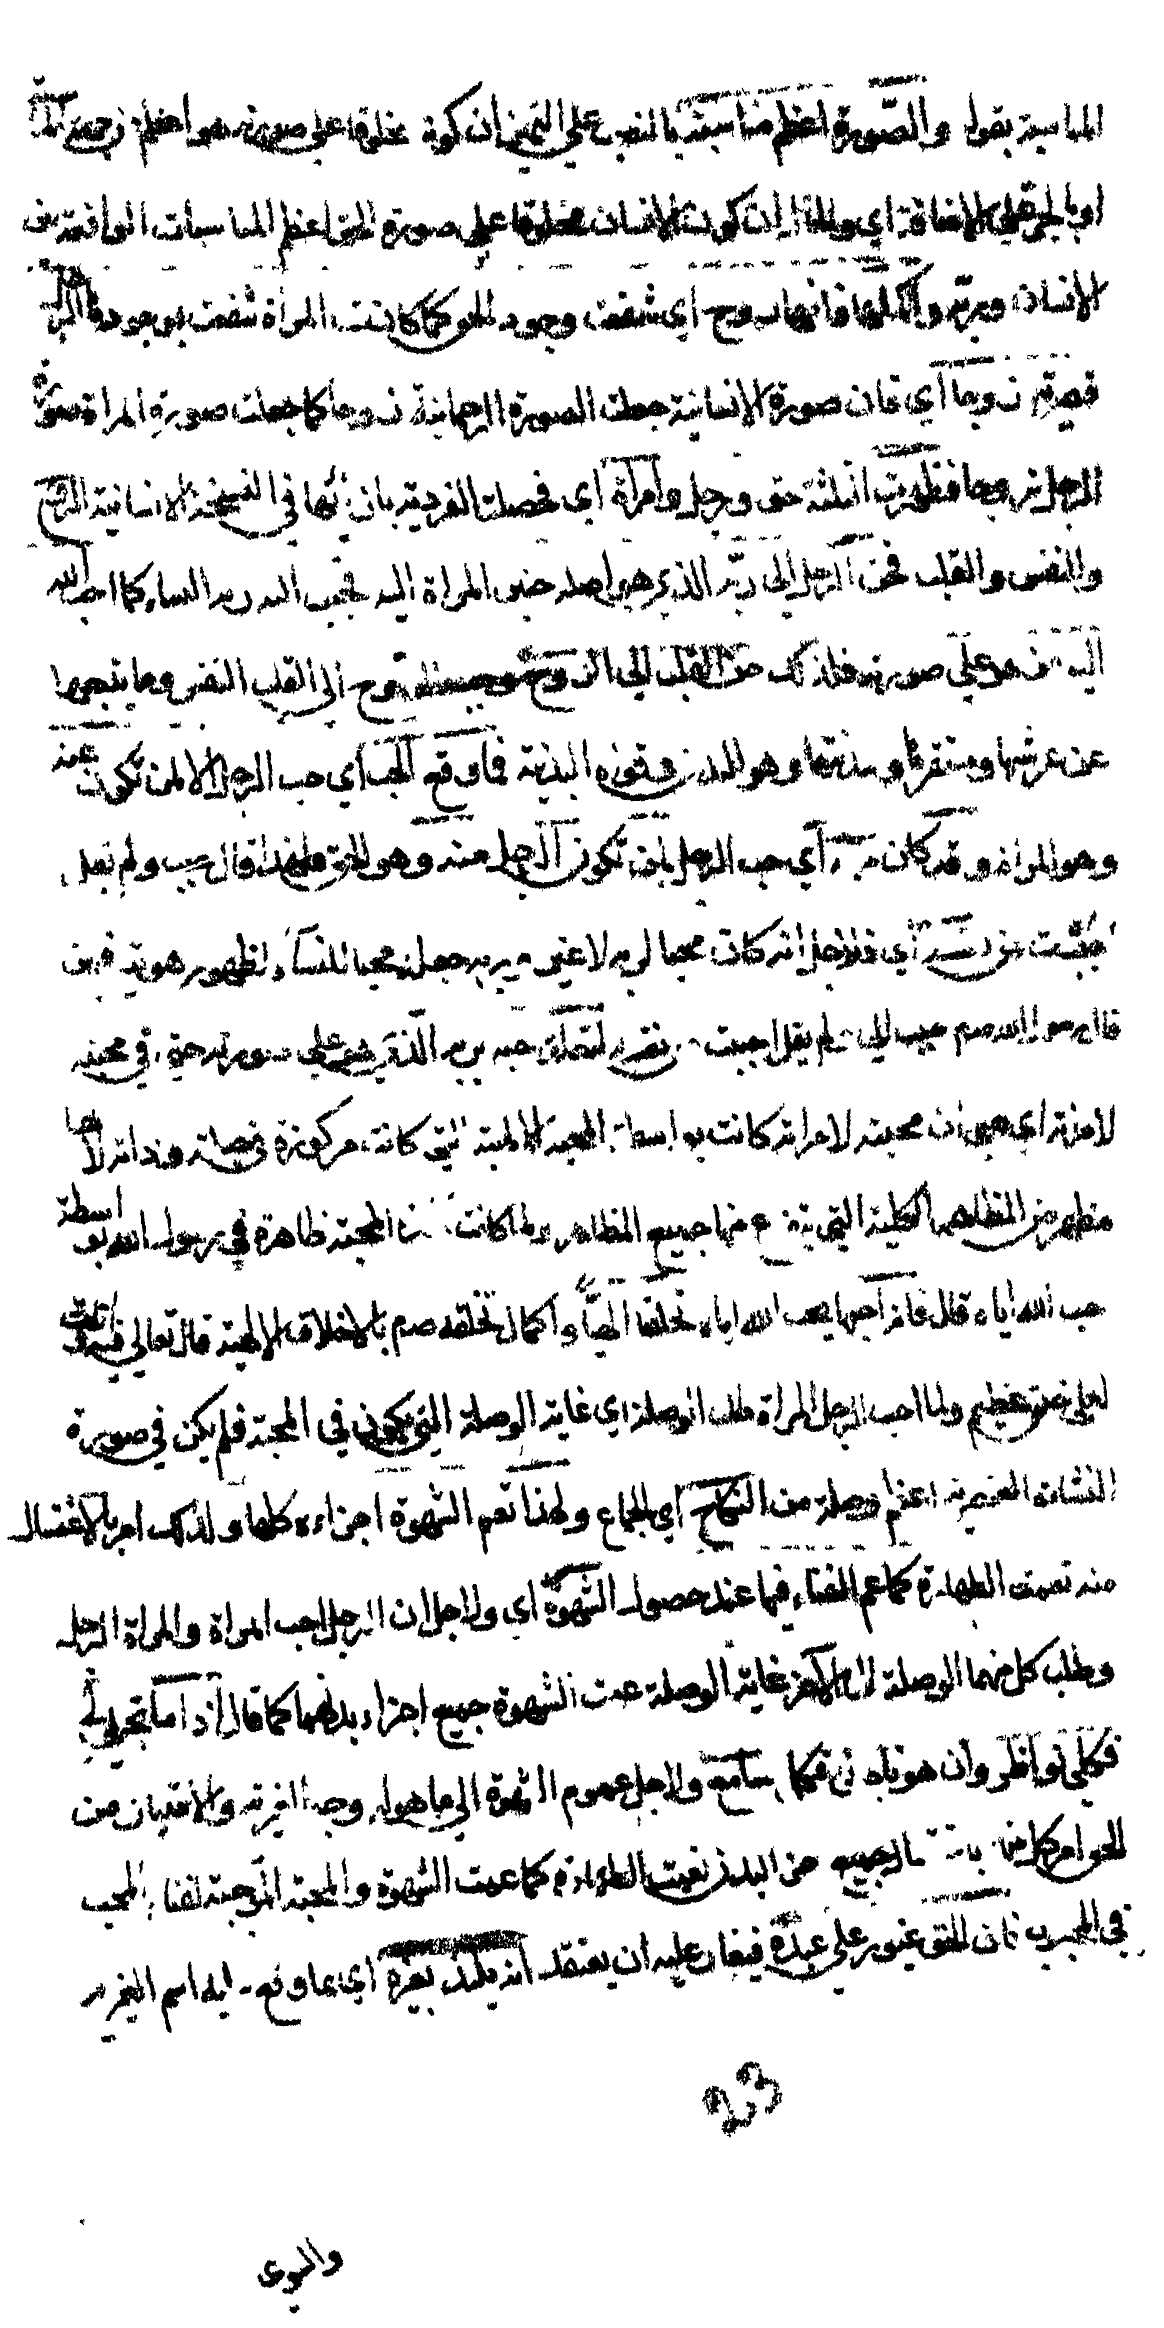 المناسبة بقوله والصورة اعظم مناسبة بالنصب على التميز ان كونه مخلوقا على صورته هو اعظم
او بالجر على الاضافة اي ولما ان كون الانسان مخلوقا على صورة الحق اعظم المناسبات الواقعة بين
الانسان وربه واكملها فانها زوج اي شفعت وجود الحق كما كانت المرأة شفعت بوجودها الرجل
فصيرته زوجا اي فان صورة الانسانية جعلت الصورة الرحمانية زوجا كما جعلت صورة المراة صورة
الرجل زوجا فظهرت الثلثة حق ورجل وامرأة اي فحصلت الفردية بازائها في النسخة الانسانية الروح
والنفس والقلب فحن الرجل الى ربه الذي هو اصله حنين المراة اليه فحبب اليه ربه النساء كما احب الله
اليه من هو على صورته فلذلك حن القلب الى الروح الروح الى القلب النفس وما يتبعها
عن عرشها ومستقرها وسدنتها وهو البدن وقواه البدنية فما وقع الحب اي حب الرجل الا لمن تكون عنه
وهو المراة وقد كان حبه اي حب الرجل لمن تكون الرجل منه وهو الحق فلهذا قال حبب ولم يقل
احببت من نفسه اي فلاجل انه كان محبا لربه لا غير ربه جعله محبا للنساء لظهور هويته فيهن
قال رسول الله صم حبب الي ولم يقل احببت من نفسه لتعلق حبه بربه الذي هو على صورته حتى في محبته
لامراته اي حتى ان محبته لامراته كانت بواسطة المحبة الالهية التي كانت مركوزة في جبلته وذاته لانها
مظهر من المظاهر الكلية التي يتفرع منها جميع المظاهر ولما كانت هذه المحبة ظاهرة في رسول الله بواسطة
حب الله اياه قال فانه احبها بحب الله اياه تخلقا الهيا وكمال تخلقه صم بالاخلاق الالهية قال تعالى فيه انك
لعلى خلق عظيم ولما احب الرجل المراة طلب الوصلة اي غاية الوصلة التي تكون في المحبة فلم يكن في صورة
النشاة العنصرية اعظم وصلة من النكاح اي الجماع ولهذا تعم الشهوة اجزاءه كلها ولذلك امر بالاغتسال
منه فعمت الطهارة كما عم الفناء فيها عند حصول الشهوة اي ولاجل ان الرجل احب المراة والمراة الرجل
وطلب كل منهما الوصلة الى الاخر غاية الوصلة عمت الشهوة جميع اجزاء بدنهما كما قال اذا ما تجلى لي
فكلي نواظر وان هو ناجاني فكلي مسامع ولاجل عموم الشهوة الى ما هو له وجه الغيرية والامتياز من
الحق امر كل منهما باغتسال جميع من البدن فعمت الطهارة كما عمت الشهوة والمحبة الموجبة لفناء المحب
في المحبوب فان الحق غيور على عبده فيغار عليه ان يعتقد انه يلتذ بغيره اي بما وقع عليه اسم الغيرية
23
والسوى